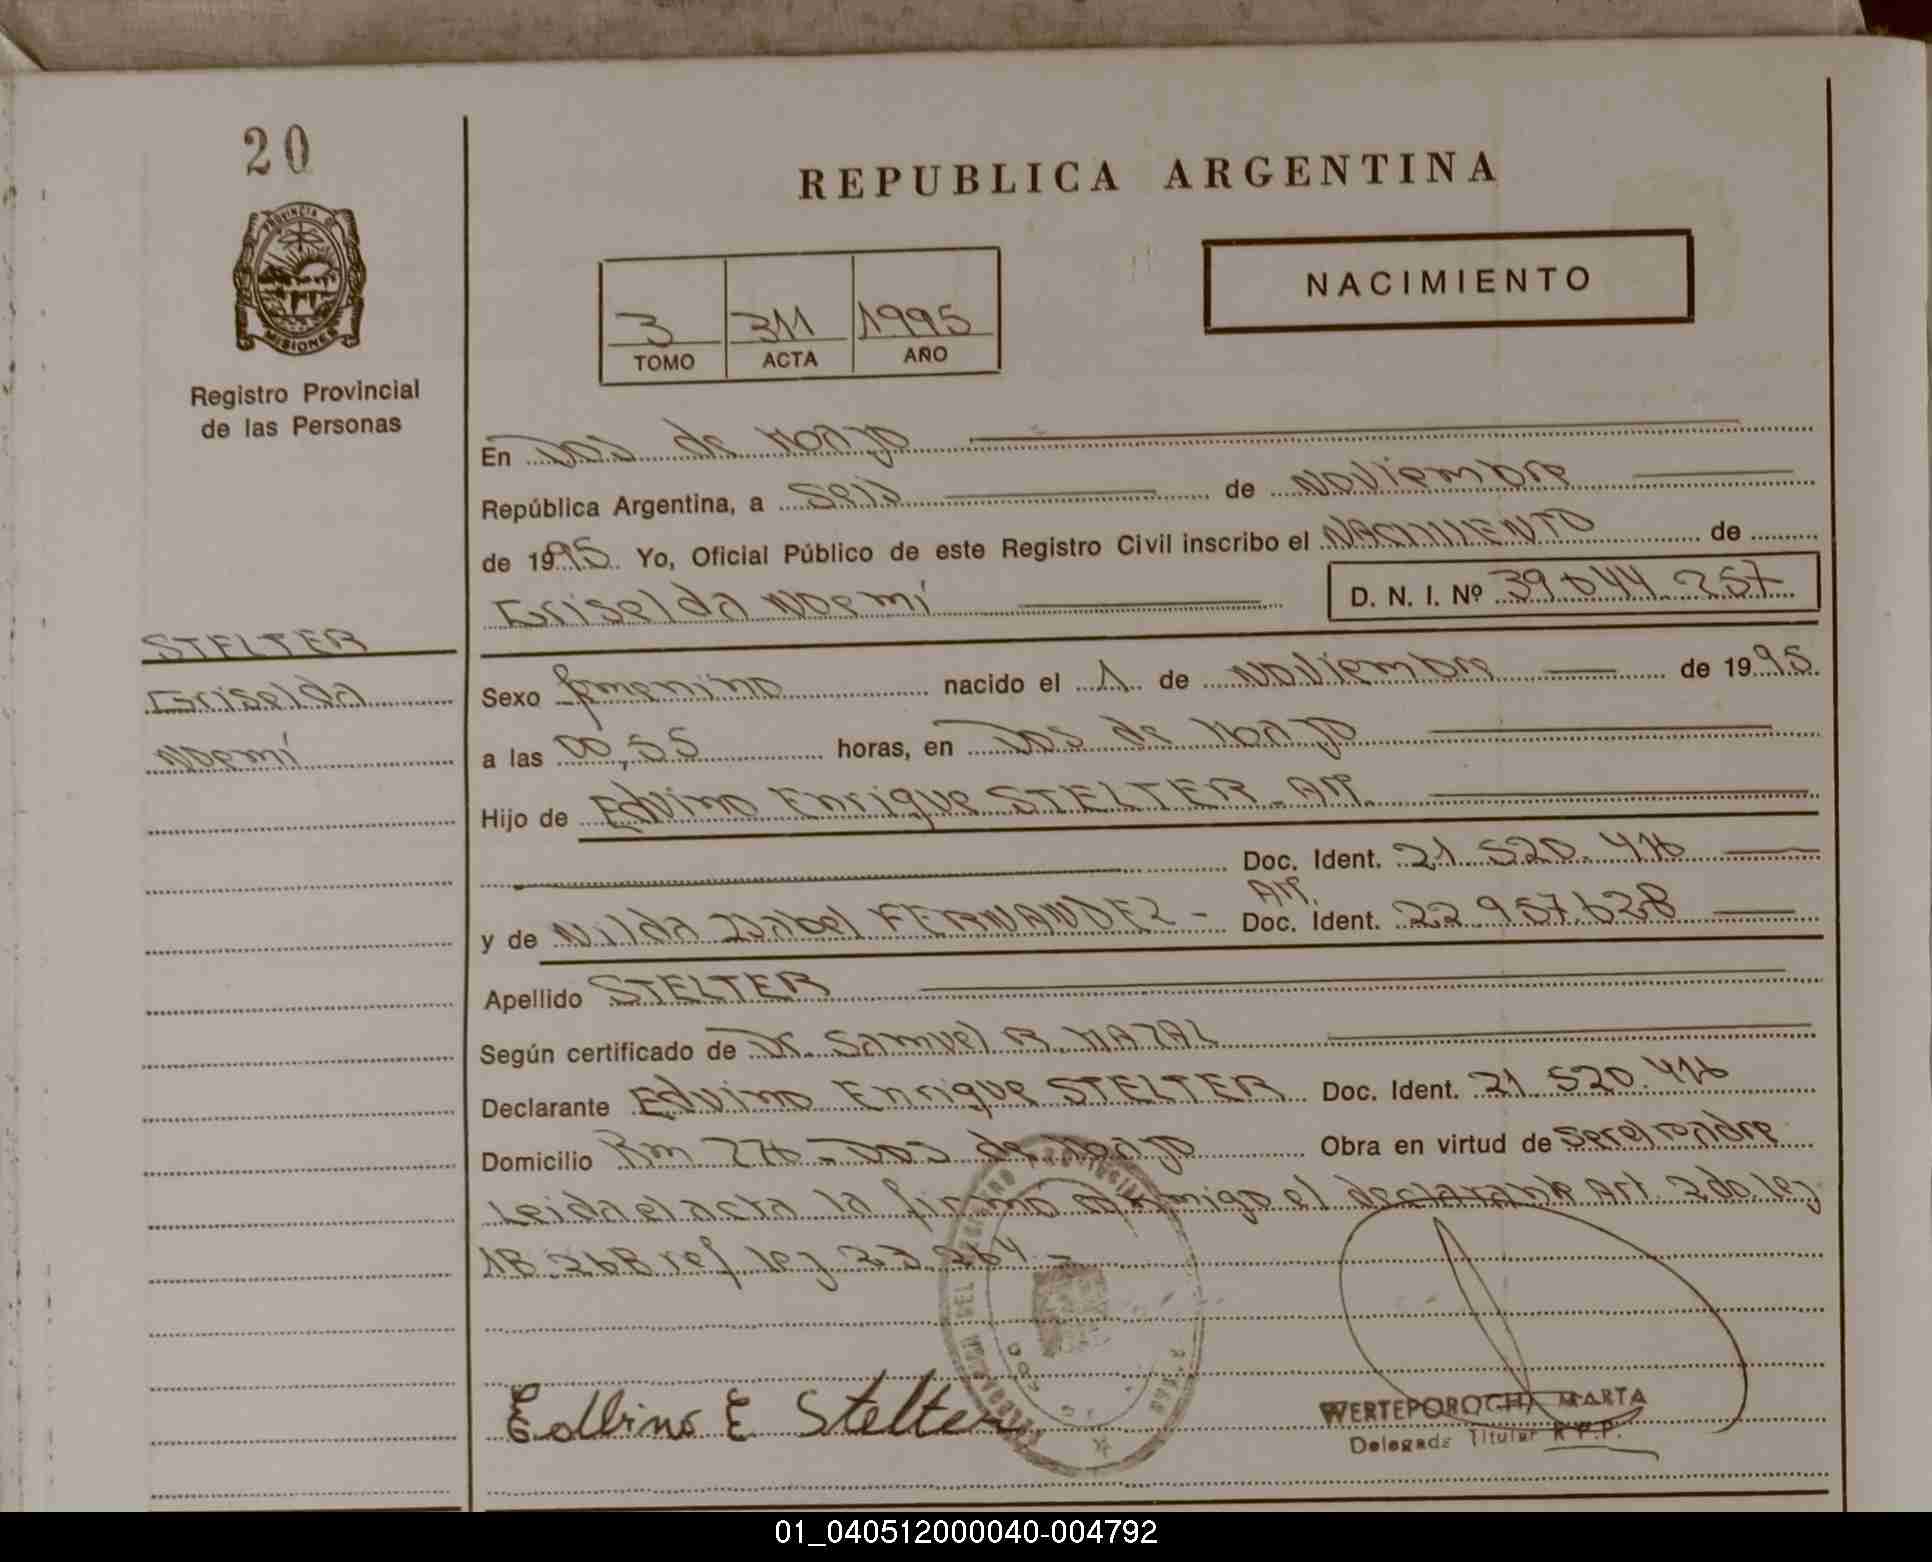 20
REPUBLICA ARGENTINA
PROVINCIA DE
MISIONES
NACIMIENTO
3 311 1995
TOMO ACTA AÑO
Registro Provincial
de las Personas
En Dos de Mayo
República Argentina, a seis de Noviembre
de 1995. Yo, Oficial Público de este Registro Civil inscribo el NACIMIENTO de
Griselda Noemí D. N. I. Nº 39.044.257
STELTER
Griselda
Noemí
Sexo femenino nacido el 1 de Noviembre de 1995.
a las 00,55 horas, en Dos de Mayo
Hijo de Edvino Enrique STELTER - Arg.
Doc. Ident. 21.520.416
Arg.
y de Nilda Isabel FERNANDEZ - Doc. Ident. 22.957.628
Apellido STELTER
Según certificado de Dr. Samuel R.
Declarante Edvino Enrique STELTER Doc. Ident. 21.520.416
Domicilio Km 276 - Dos de Mayo Obra en virtud de ser el padre
Leida el acta la firmó conmigo el declarante Art. 2do. ley
18.268 ref ley 23.264 -
Edbino E Stelter
WERTEPOROCH, MARTA
Delegada Titular R.P.P.
01_040512000040-004792